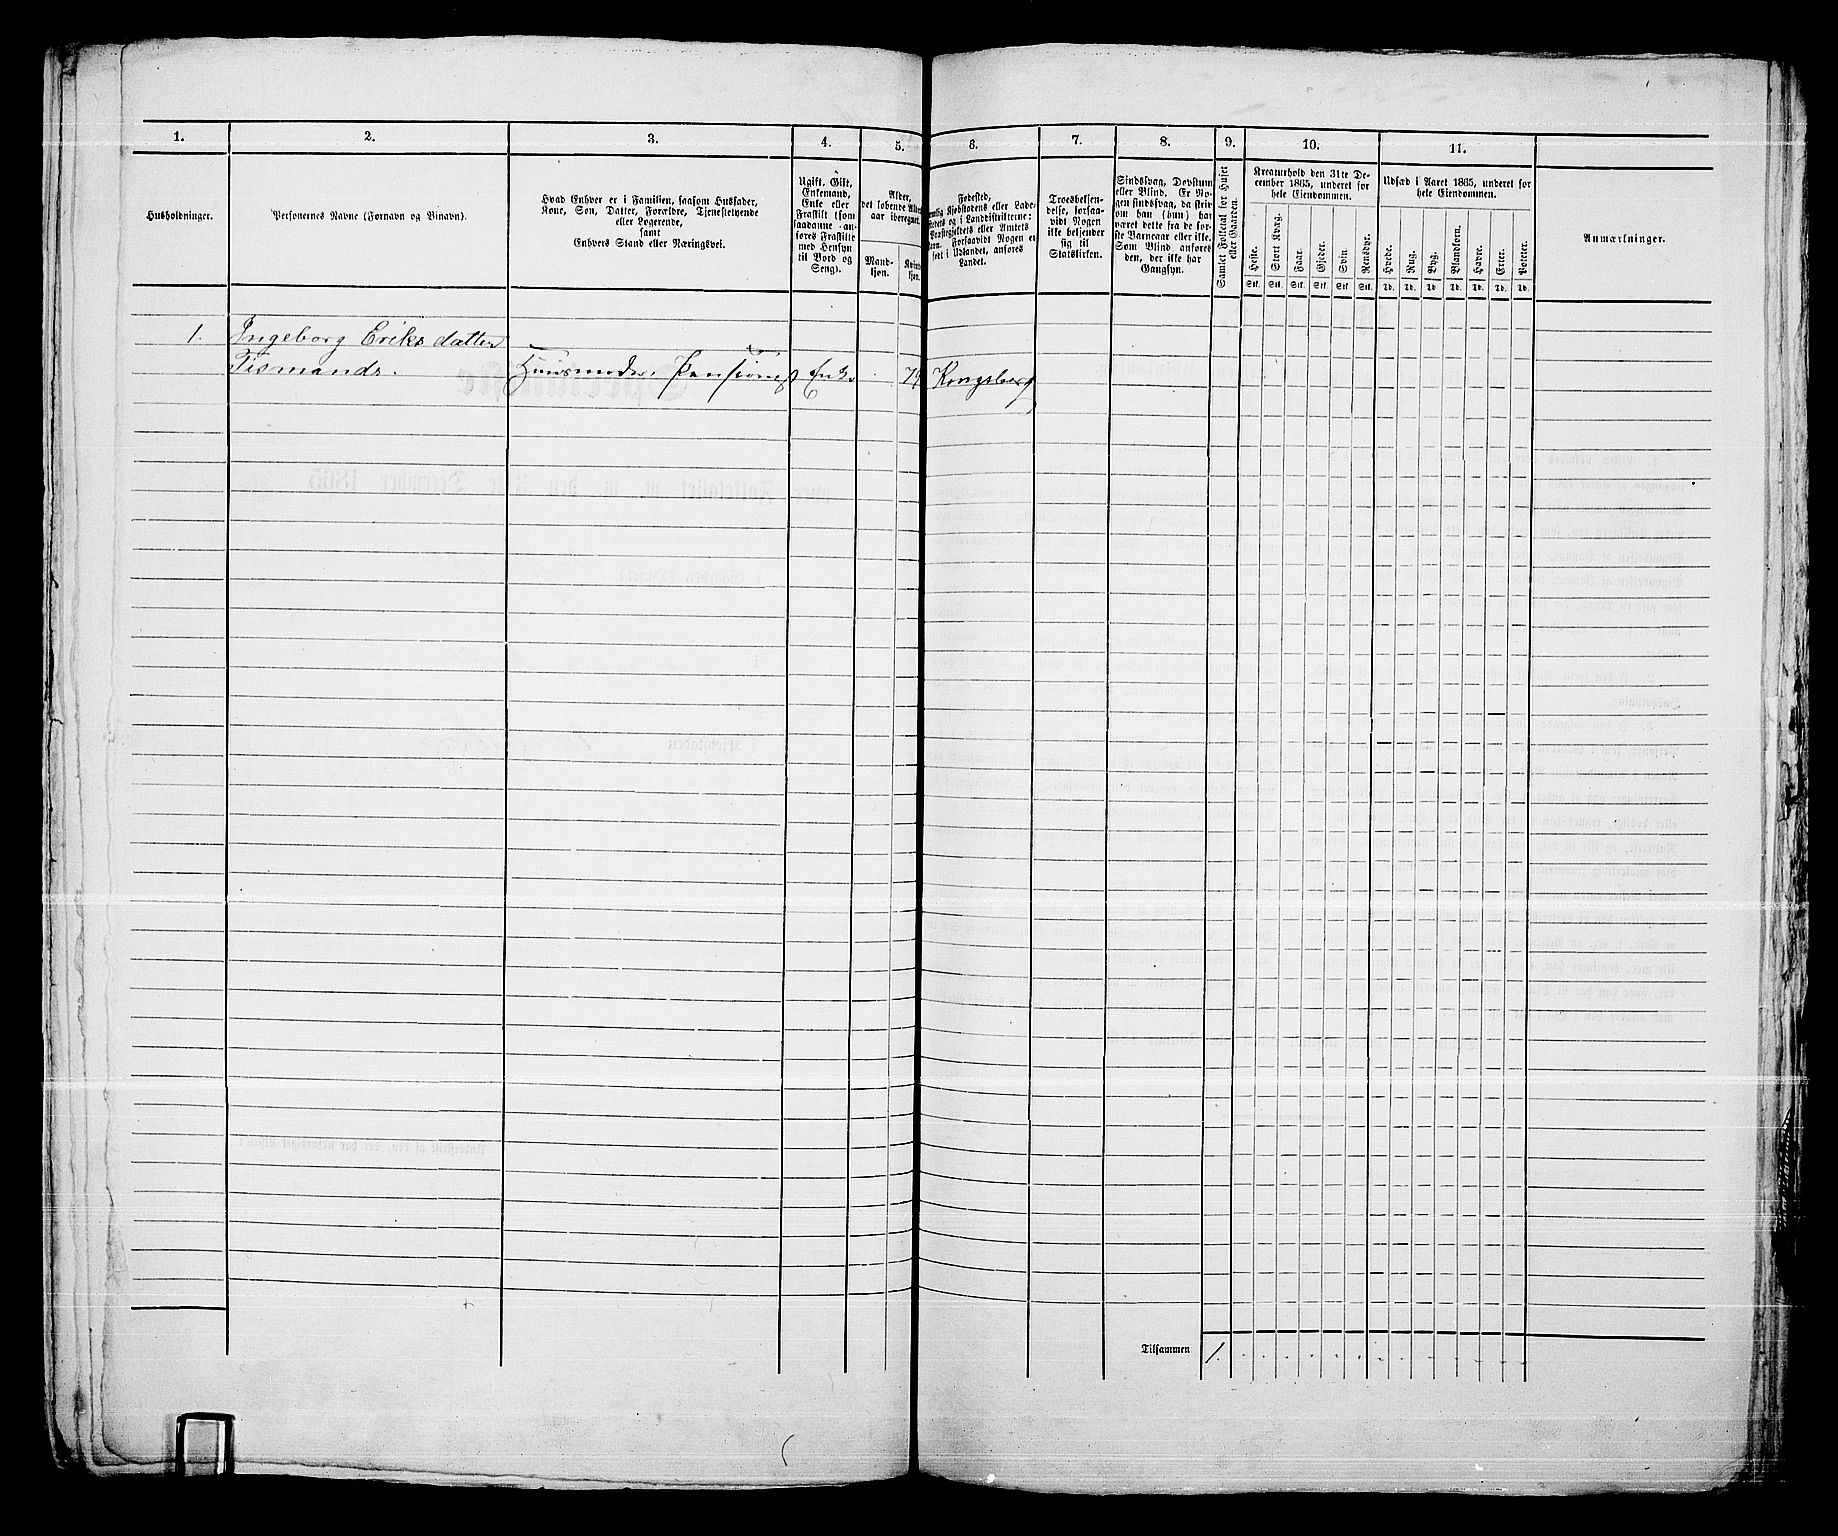 1. 2. 3. 4. 5. 6. 7. 8. 9. 10. 11.
Husholdninger.
Personernes Navne (Fornavn og Binavn).
Hvad Enhver er i Familien, saasom Husfader,
Kone, Søn, Datter, Forældre, Tjenestetyende
eller Logerende,
samt
Enhvers Stand eller Næringsvei.
Ugift, Gift,
Enkemand,
Enke eller
Fraskilt (som
saadanne an-
føres Fraskilte
med Hensyn
til Bord og
Seng).
Alder,
det løbende Alders-
aar iberegnet.
Mand-
kjøn.
Kvinde-
kjøn.
Fødested,
Kjøbstadens eller Lade-
stedets og i Landdistrikterne:
Præstegjeldets eller Amtets
Navn. Forsaavidt Nogen er
født i Udlandet, anføres
Landet.
Troesbekjen-
delse, forsaa-
vidt Nogen
ikke bekjender
sig til
Statskirken.
Sindssvag, Døvstum
eller Blind. Er No-
gen sindssvag, da skriv
om han (hun) har
været dette fra de før-
ste Barneaar eller ikke.
Som Blind anføres
den, der ikke har
Gangsyn.
Samlet Folketal for Huset
eller Gaarden.
Kreaturhold den 31te De-
cember 1865, underet for
hele Eiendommen.
Heste. Stort Kvæg. Faar. Gjeder. Svin Rensdyr.
Stk. Stk. Stk. Stk. Stk. Stk.
Udsæd i Aaret 1865, underet for
hele Eiendommen.
Hvede. Rug. Byg. Blandkorn. Havre. Erter. Poteter.
Td. Td. Td Td. Td. Td. Td.
Anmærkninger.
1. Ingeborg Eriksdatter
Tismands. Huusmoder, Pensionist Enke 79 Kongsberg
Tilsammen 1.